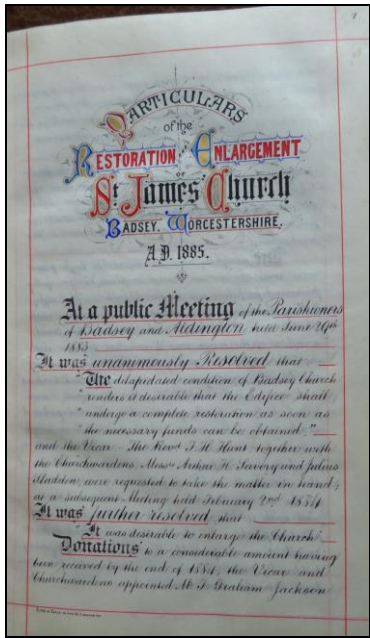 Particulars
of the
Restoration and Enlargement
of
St James' Church
Badsey, Worcestershire,
A.D. 1885.
At a public Meeting of the Parishioners
of Badsey and Aldington held June 29th
1883
It was unanimously Resolved that
"The dilapidated condition of Badsey Church
"renders it desirable that the Edifice shall
"undergo a complete restoration as soon as
"the necessary funds can be obtained,"
and the Vicar - The Revd T. H. Hunt together with
the Churchwardens, Messrs Arthur H. Savory and Julius
Sladden, were requested to take the matter in hand;
at a subsequent Meeting held February 2nd 1884
It was further resolved that
"It was desirable to enlarge the Church"
Donations to a considerable amount having
been received by the end of 1884, the Vicar and
Churchwardens appointed Mr T. Graham Jackson